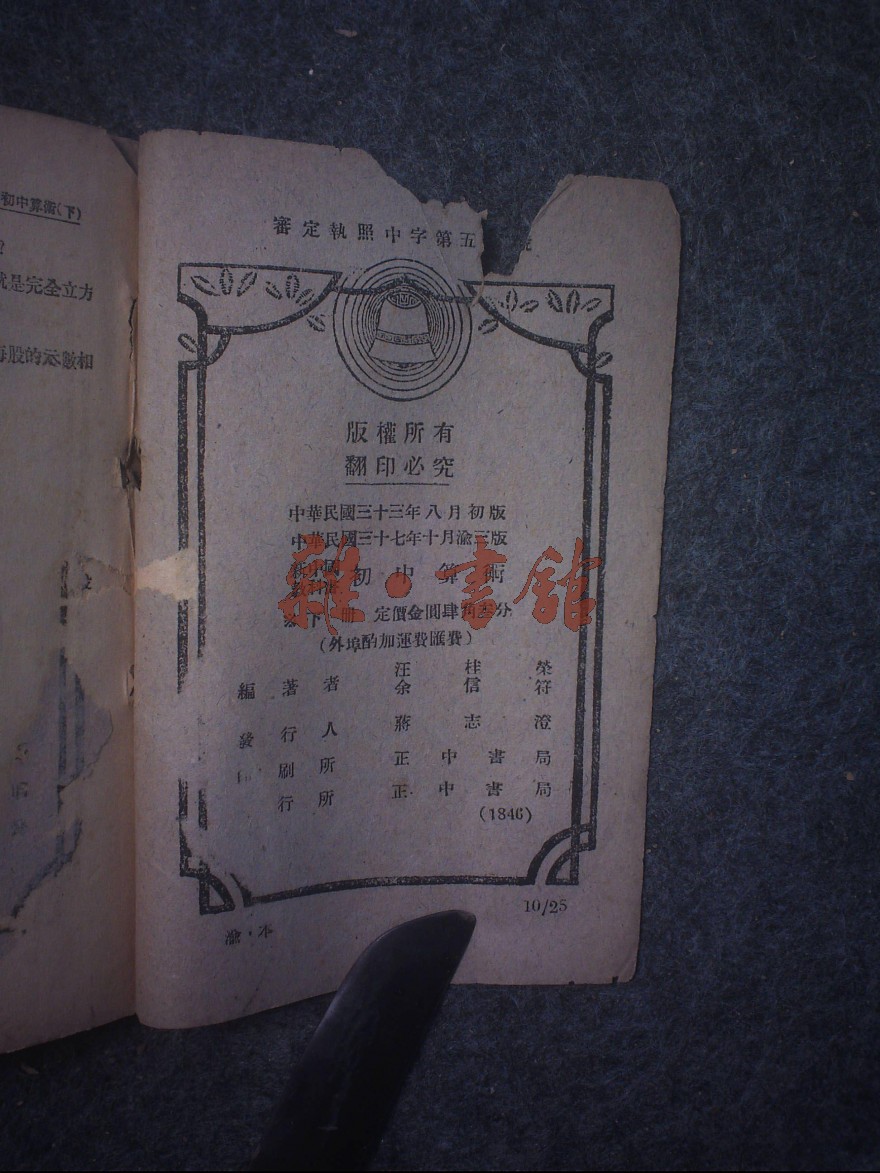 初中算術(下)
就是完全立方
每股的元數相
審定執照中字第五
版權所有
翻印必究
中華民國三十三年八月初版
中華民國三十七年十月渝三版
初中算術
下冊 定價金圓肆角 分
(外埠酌加運費匯費)
汪桂榮
編著者 余信符
發行人 蔣志澄
印刷所 正中書局
行所 正中書局
(1846)
10/25
渝·本
雜·書館